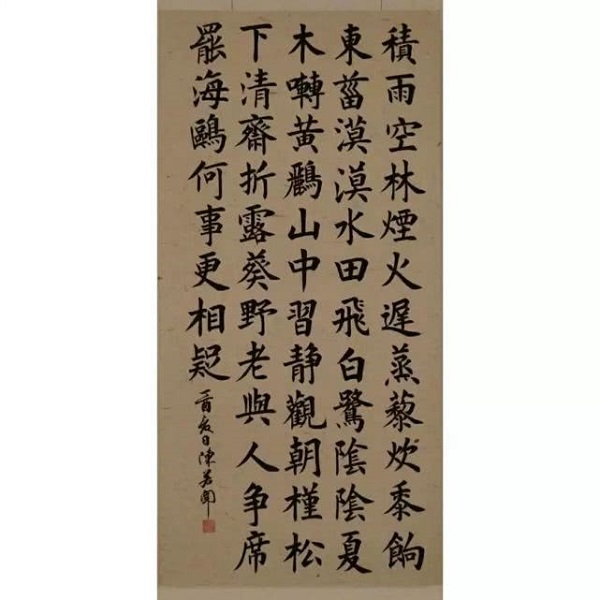 積雨空林煙火遲蒸藜炊黍餉
東菑漠漠水田飛白鷺陰陰夏
木囀黄鸝山中習静觀朝槿松
下清齋折露葵野老與人争席
罷海鷗何事更相疑
丁酉夏日陳